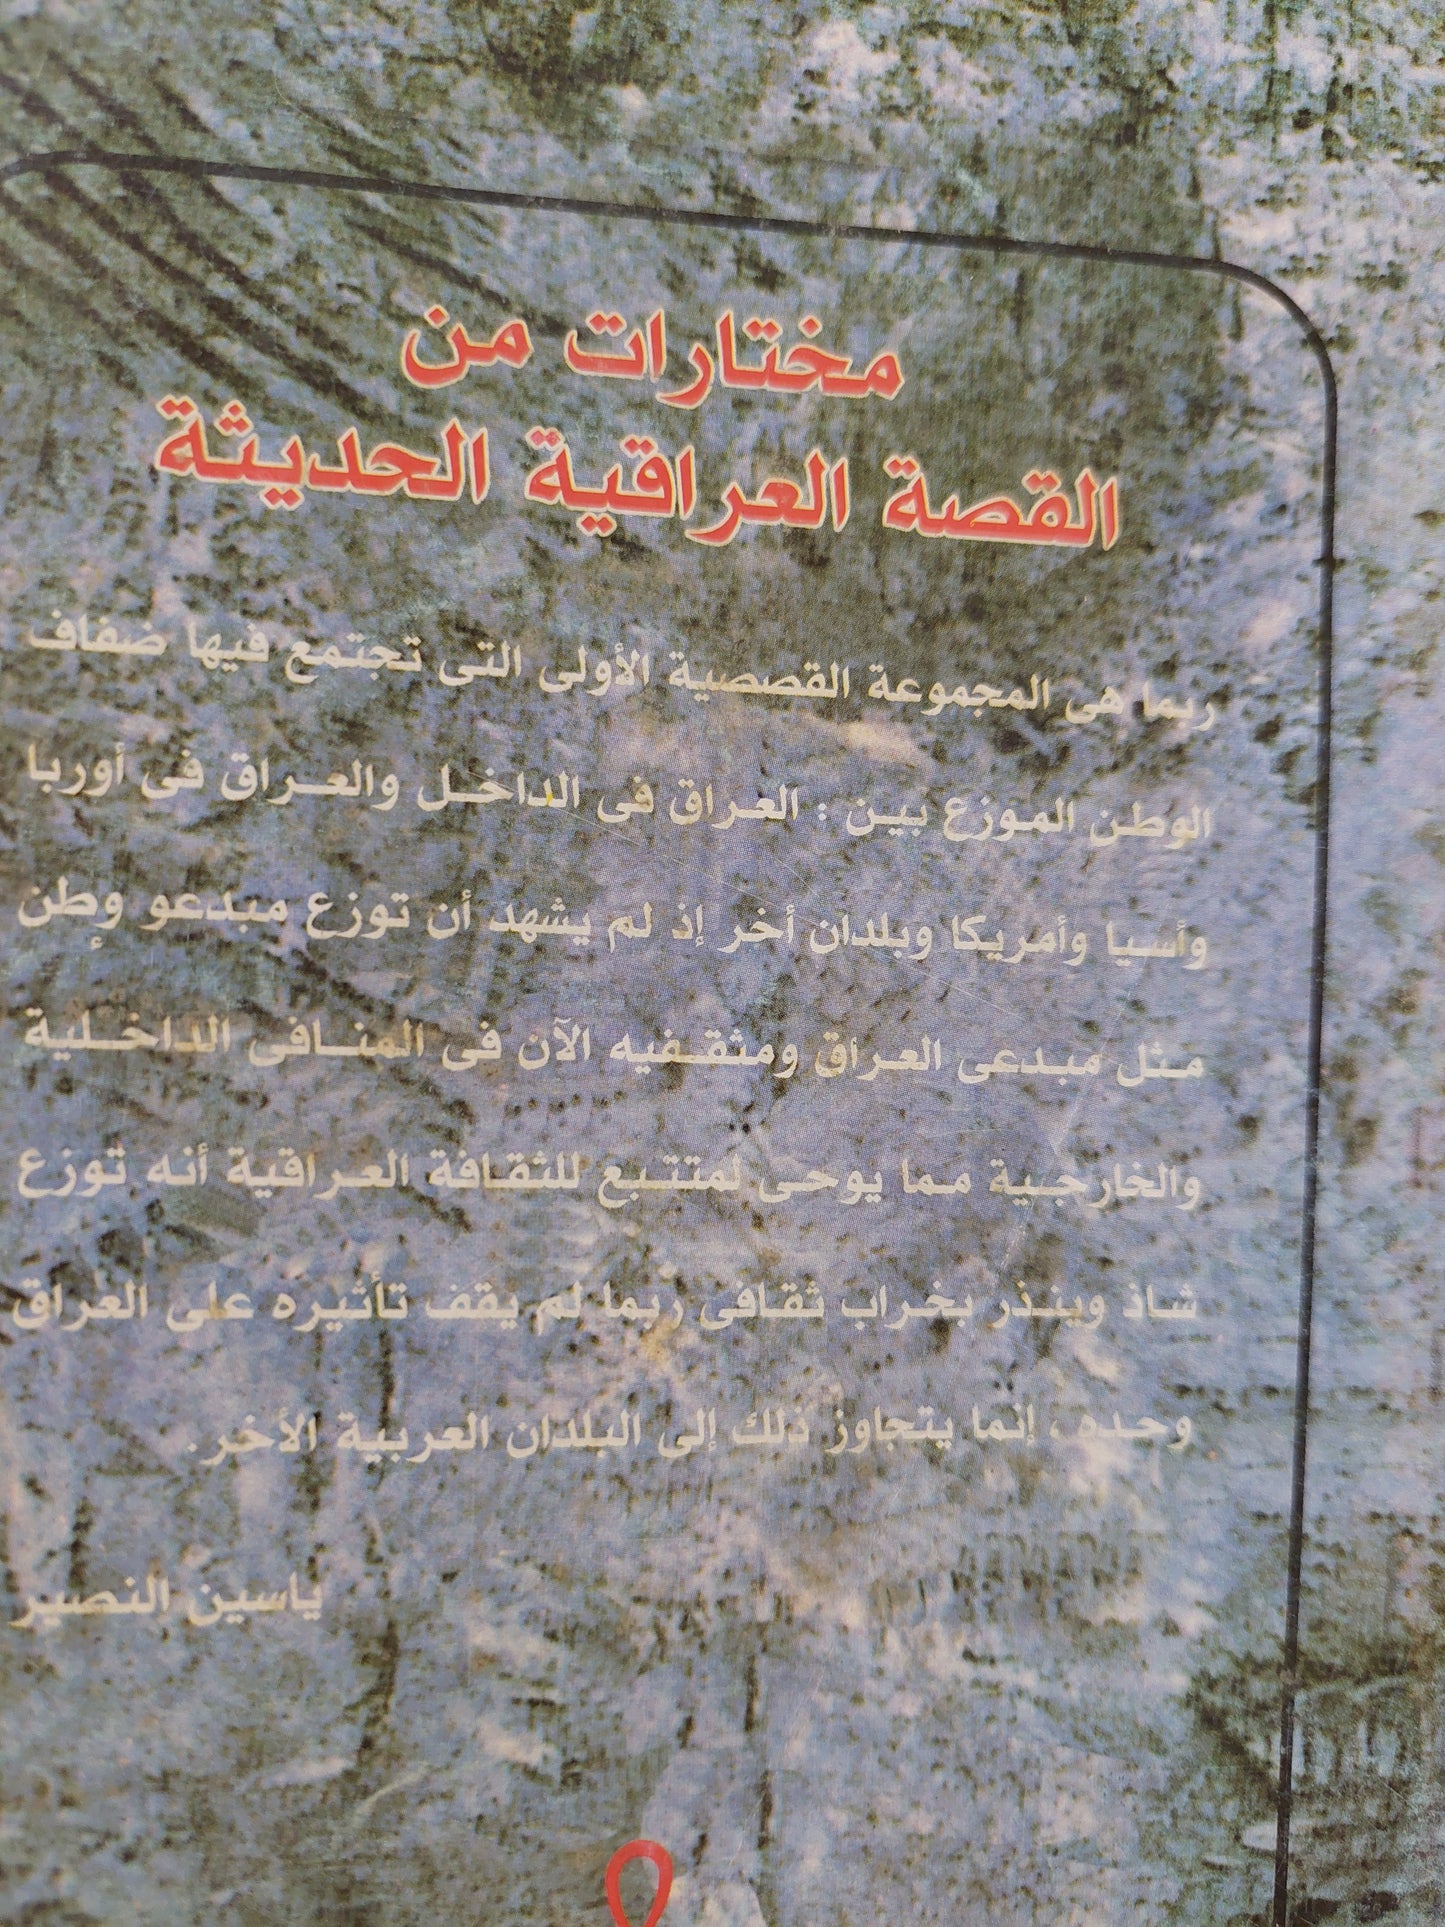 مختارات من
القصة العراقية الحديثة
ربما هى المجموعة القصصية الأولى التى تجتمع فيها ضفاف
الوطن الموزع بين : العراق فى الداخل والعراق فى أوربا
وأسيا وأمريكا وبلدان أخر إذ لم يشهد أن توزع مبدعو وطن
مثل مبدعى العراق ومثقفيه الآن فى المنافى الداخلية
والخارجية مما يوحى لمتتبع للثقافة العراقية أنه توزع
شاذ وينذر بخراب ثقافى ربما لم يقف تأثيره على العراق
وحده ، إنما يتجاوز ذلك إلى البلدان العربية الأخر.
ياسين النصير